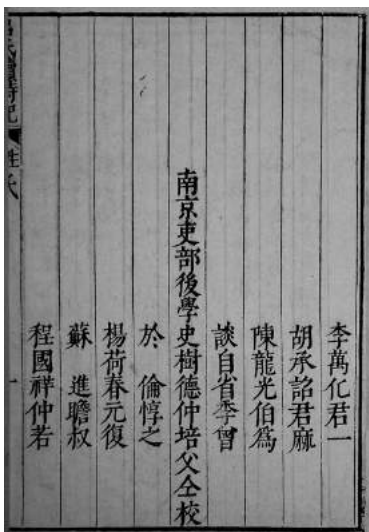 李萬化君一
胡承詔君麻
陳龍光伯爲
談自省季曾
南京吏部後學史樹德仲培父仝校
於　倫惇之
楊荷春元復
蘇　進瞻叔
程國祥仲若
姓氏
一